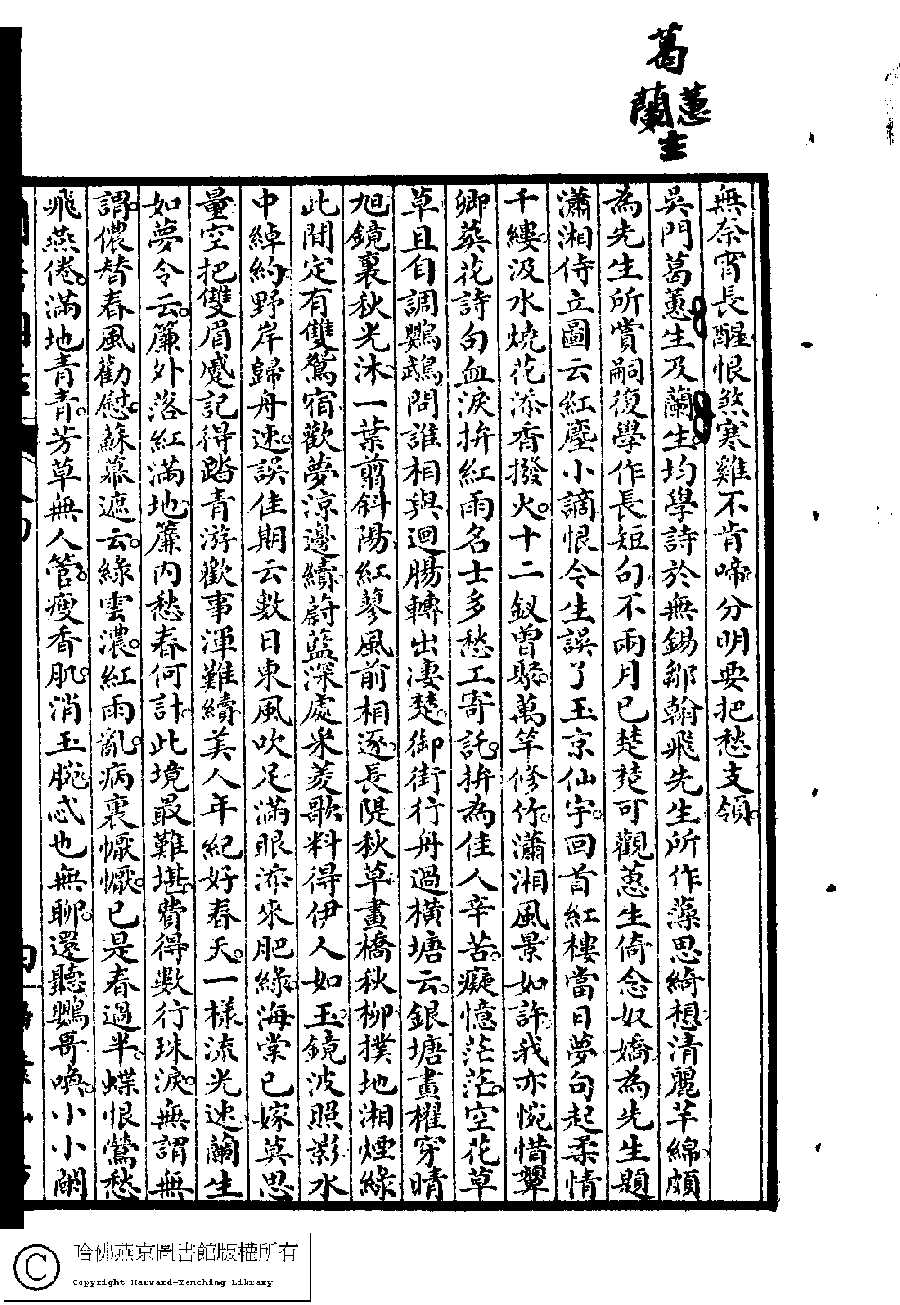 葛蕙蘭生
無奈宵長醒恨煞寒雞不肯啼分明要把愁支領
吳門葛蕙生及蘭生均學詩於無錫鄒翰飛先生所作藻思綺想清麗芊綿頗
為先生所賞嗣復學作長短句不兩月已楚楚可觀蕙生倚念奴嬌為先生題
瀟湘侍立圖云紅塵小謫恨今生誤了玉京仙宇回首紅樓當日夢句起柔情
千縷汲水燒花添香撥火十二釵曾聚萬竿修竹瀟湘風景如許我亦惋惜顰
卿葬花詩句血淚拚紅雨名士多愁工寄託拚為佳人辛苦癡憶茫茫空花草
草且自調鸚鵡問誰相與迴腸轉出淒楚御街行舟過橫塘云銀塘畫櫂穿晴
旭鏡裏秋光沐一葉剪斜陽紅蓼風前相逐長隄秋草畫橋秋柳撲地湘煙綠
此間定有雙鴛宿歡夢涼邊續蔚藍深處采菱歌料得伊人如玉鏡波照影水
中綽約野岸歸舟速誤佳期云數日東風吹足滿眼添來肥綠海棠已嫁莫思
量空把雙眉蹙記得踏青游歡事渾難續美人年紀好春天一樣流光速蘭生
如夢令云簾外落紅滿地簾內愁春何計此境最難堪費得數行珠淚無謂無
謂儂替春風勸慰蘇幕遮云綠雲濃紅雨亂病裏懨懨已是春過半蝶恨鶯愁
飛燕倦滿地青青芳草無人管瘦香肌消玉腕忒也無聊還聽鸚哥喚小小闌
哈佛燕京圖書館版權所有
Copyright Harvard-Yenching Library